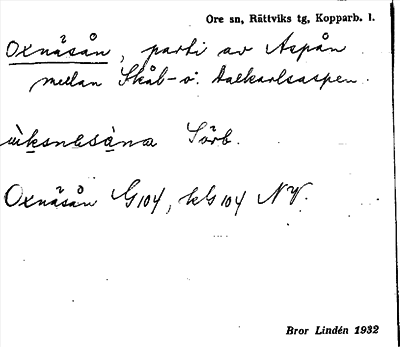 Ore sn, Rättviks tg, Kopparb. l.
Oxnäsån, parti av Aspån
mellan Skål- o. Dalkarlsaspen.
ùksnɛsàna Sörb.
Oxnäsån G104, kG104 NV.
Bror Lindén 1932